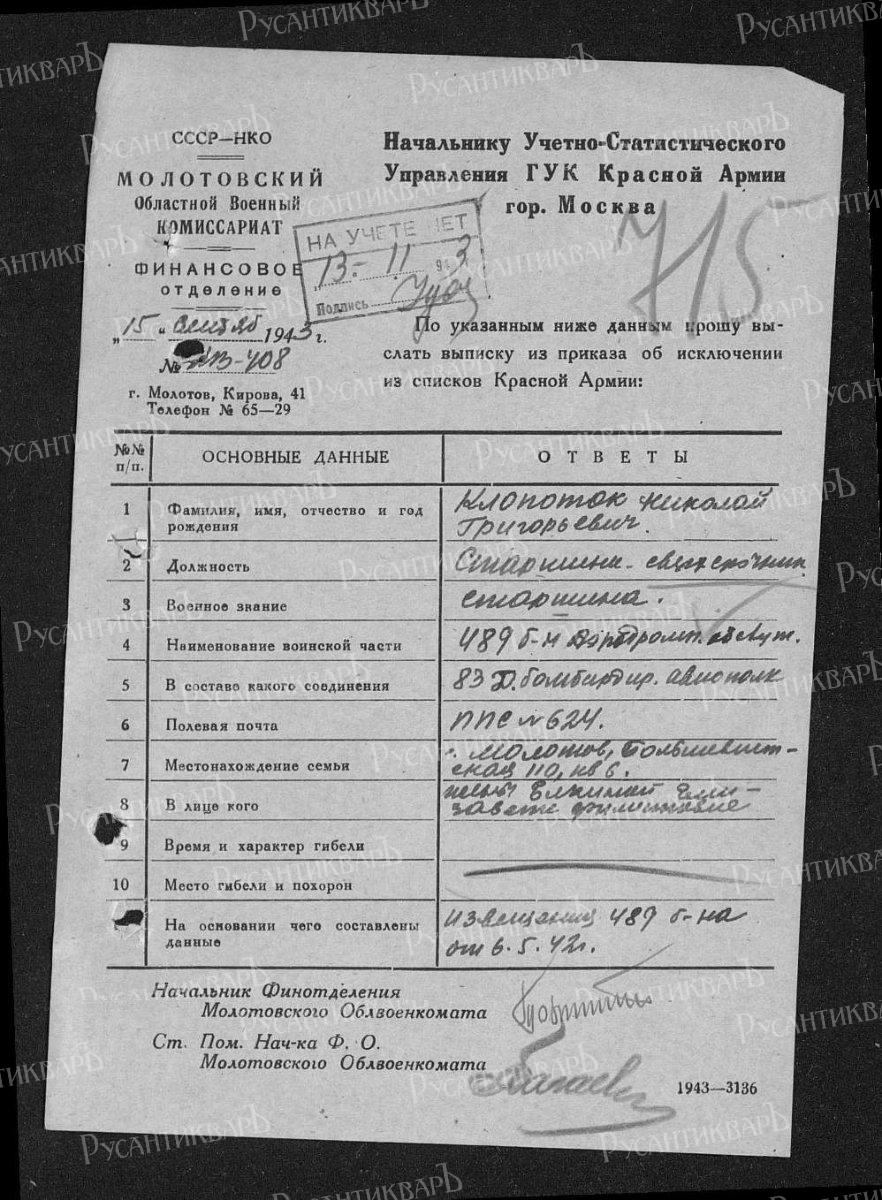 СССР—НКО
МОЛОТОВСКИЙ
Областной Военный
КОМИССАРИАТ
ФИНАНСОВОЕ
ОТДЕЛЕНИЕ
„15“ Сентяб 1943 г.
№ -408
г. Молотов, Кирова, 41
Телефон № 65—29
Начальнику Учетно-Статистического
Управления ГУК Красной Армии
гор. Москва
НА УЧЕТЕ НЕТ
13 - 11 943
Подпись
715
По указанным ниже данным прошу вы-
слать выписку из приказа об исключении
из списков Красной Армии:
№№ п/п. ОСНОВНЫЕ ДАННЫЕ ОТВЕТЫ
1 Фамилия, имя, отчество и год рождения Клопоток Николай
Григорьевич.
2 Должность Старшина - сверхсрочник
3 Военное звание старшина.
4 Наименование воинской части 489 б-н Аэродромн. обслуж.
5 В составе какого соединения 83 Д. бомбардир. авиополк
6 Полевая почта ППС № 624.
7 Местонахождение семьи г. Молотов, Большевист-
ская 110, кв 6.
8 В лице кого жены Ели-
завете
9 Время и характер гибели
10 Место гибели и похорон
На основании чего составлены данные извещения 489 б-на
от 6.5.42г.
Начальник Финотделения
Молотовского Облвоенкомата
Ст. Пом. Нач-ка Ф. О.
Молотовского Облвоенкомата
1943—3136
РусантикварЪ